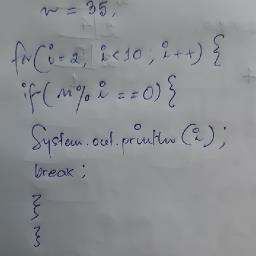 n = 35;
for(i=2, i<10; i++) {
if(n%i==0){
System.out.println(i);
break;
}
}